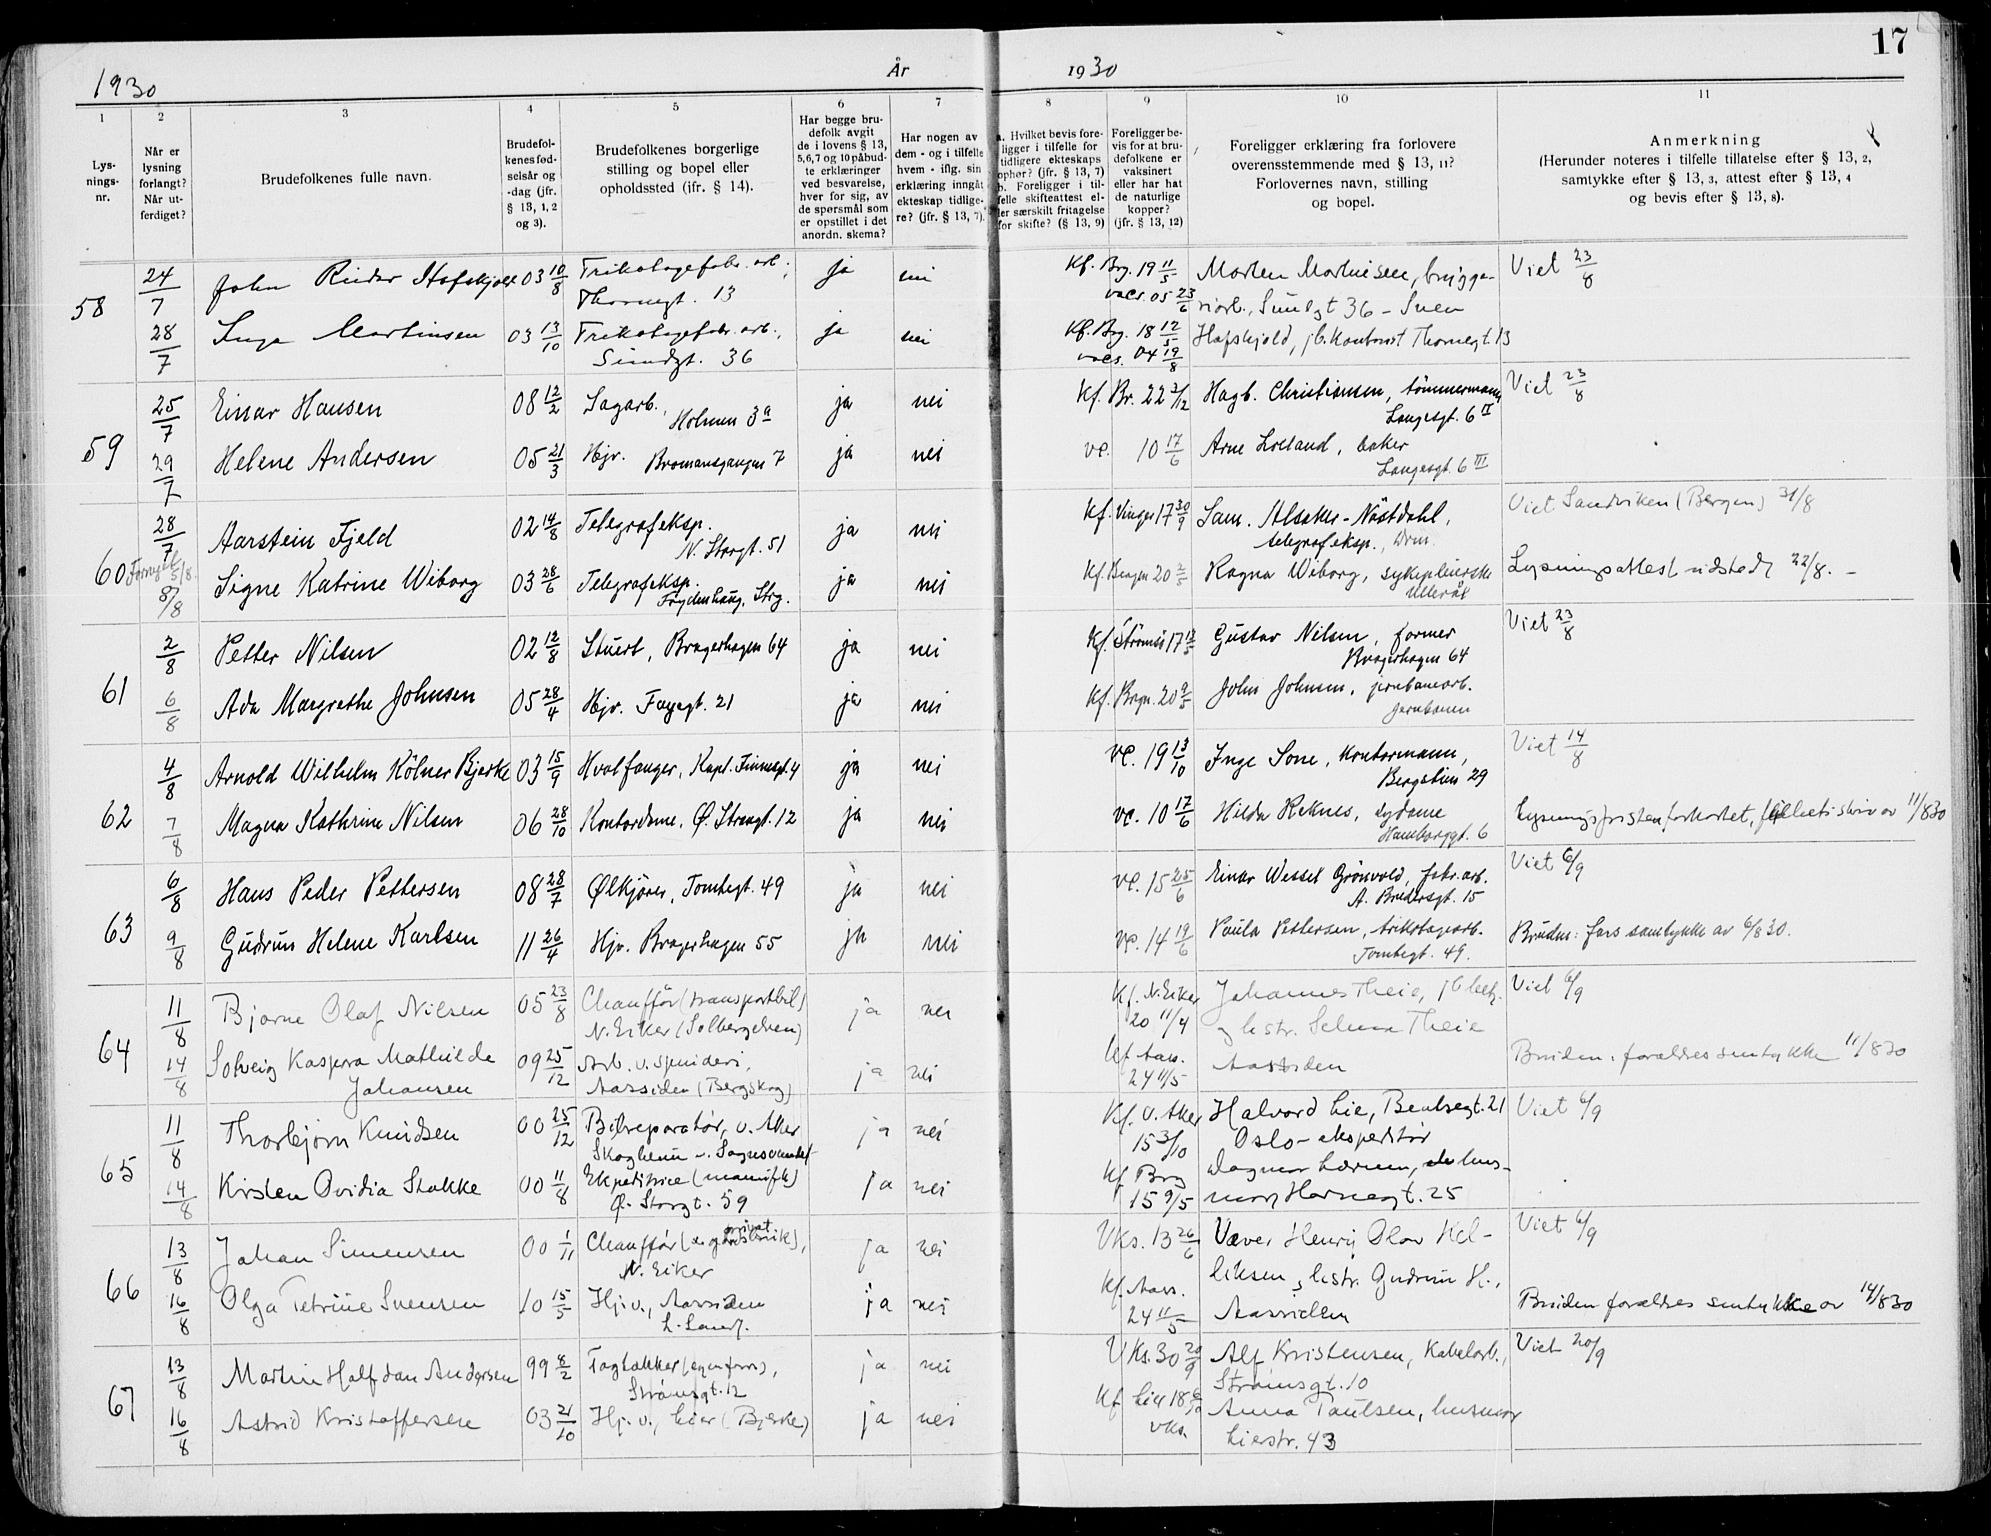 17
1930
År
1930
1
2
3
4
5
6
7
8
9
10
11
Lys-
nings-
nr.
Når er
lysning
forlangt?
Når ut-
ferdiget?
Brudefolkenes fulle navn.
Brudefol-
kenes fød-
selsår og
-dag (jfr.
§ 13, 1, 2
og 3).
Brudefolkenes borgerlige
stilling og bopel eller
opholdssted (ifr. § 14).
Har begge bru-
defolk avgit
de i lovens § 13,
5,6,7 og 10 påbud-
te erklæringer
ved besvarelse,
hver for sig, av
de spørsmål som
er opstillet i det
anordn. skema?
Har nogen av
dem - og i tilfelle
hvem - iflg. sin
erklæring inngåt
ekteskap tidlige-
re? (jfr. § 13, 7).
a. Hvilket bevis fore-
ligger i tilfelle for
tidligere ekteskaps
ophør? (jfr. § 13, 7)
b. Foreligger i til-
felle skifteattest el-
ler særskilt fritagelse
for skifte? (§ 13, 9)
Foreligger be-
vis for at bru-
defolkene er
vaksinert
eller har hat
de naturlige
kopper?
(jfr. § 13, 12)
Foreligger erklæring fra forlovere
overensstemmende med § 13, 11?
Forlovernes navn, stilling
og bopel.
Anmerkning
(Herunder noteres i tilfelle tillatelse efter § 13, 2,
samtykke efter § 13, 3, attest efter § 13, 4
og bevis efter § 13, 8).
58
24/7 John Reidar Hafskjold 03 10/8 Trikotagefabr. arb. ja nei Kf. Brg. 19 11/5 Morten Martinsen, brygge- Viet 23/8
Thornegt. 13 vacs. 05 23/6 riarb., Sundgt 36 - Sven
28/7 Inga Martinsen 03 13/10 Trikotagefabr. arb., ja nei Kf. Brg. 18 12/5 Hafskjold, jb. kontorist Thornegt. 13
Sundgt. 36 vacs. 04 19/8
59
25/7 Einar Hansen 08 12/2 Sagarb., Holmen 3a ja nei Kf. Br. 22 3/12 Hagb. Christiansen, tømmermann, Viet 23/8
Langesgt. 6 II
29/7 Helene Andersen 05 21/3 Hjv. Bromansgangen 7 ja nei vc. 10 17/6 Arne Loeland, baker
Langesgt. 6 III
60
28/7 Aarstein Fjeld 02 14/8 Telegrafeksp. ja nei Kf. Vinger 17 30/9 Sam. Alsaker-Nøstdahl, Viet Sandviken (Bergen) 31/8
N. Storgt. 51 telegrafeksp., Drm.
Fornyet 5/8.
8/8 Signe Katrine Wiborg 03 28/6 Telegrafeksp. ja nei Kf. Bergen 20 2/5 Ragna Wiborg, sykepleierske Lysningsattest utstedt 22/8. -
Frydenhaug, Strg. Ullerål
61
2/8 Petter Nilsen 02 12/8 Stuert, Bragerhagen 64 ja nei Kf. Strømsø 17 13/5 Gustav Nilsen, former Viet 23/8
Bragerhagen 64
6/8 Ada Margrethe Johnsen 05 28/4 Hjv. Fayegt. 21 ja nei Kf. Bragn. 20 9/5 John Johnsen, jernbanearb.
Jernbanen
62
4/8 Arnold Wilhelm Kölner Bjerke 03 15/9 Hvalfanger, Kapt. Finnesgt. 4 ja nei vc. 19 13/10 Inge Sone, kontormann, Viet 14/8
Bergstien 29
7/8 Magna Kathrine Nilsen 06 28/10 Kontordame, Ø. Storgt. 12 ja nei vc. 10 17/6 Hilda Reknes, sydame Lysningsfristen forkortet, skriv av 11/8 30
Hamborggt. 6
63
6/8 Hans Peder Pettersen 08 28/7 Ølkjører, Tomtegt. 49 ja nei vc. 15 25/6 Einar Wessel Grönvold, fabr. arb. Viet 6/9
A. Bredersgt. 15
9/8 Gudrun Helene Karlsen 11 26/4 Hjv. Bragerhagen 55 ja nei vc. 14 19/6 Paula Pettersen, trikotagearb. Bruden: fars samtykke av 6/8 30.
Tomtegt. 49.
64
11/8 Bjarne Olaf Nilsen 05 23/8 Chauffør (transportbil) ja nei Kf. N. Eiker Johannes Theie, jb. betj. Viet 6/9
N. Eiker (Solbergelven) 20 11/4 og hstr. Selma Theie
14/8 Solveig Kaspara Mathilde 09 25/12 Arb. v. spinderi, ja nei Kf. Aass. Aassiden Bruden: forældres samtykke 11/8 30
Johansen Aassiden (Bergskog) 24 11/5
65
11/8 Thorbjørn Knudsen 00 25/12 Bilreparatør, v. Aker ja nei Kf. V. Aker Halvard Lie, Bentsegt. 21 Viet 6/9
Skogheim v. Sognsvannet 15 3/10 Oslo - ekspeditør
14/8 Kirsten Ovidia Stakke 00 11/8 Ekspeditrice (manufk) ja nei Kf. Brg Dagmar Lærum, hus-
Ø. Storgt. 59 15 9/5 mor, Havnegt. 25
66
13/8 Johan Simensen 00 1/11 Chauffør (privat gårdsbruk), ja nei Vks. 13 26/6 Væver Henry Olav Hel- Viet 6/9
N. Eiker
16/8 Olga Petrine Svensen 10 15/5 Hj. v., Aassiden ja nei Kf. Aass. liksen, hstr. Gudrun H., Bruden forældres samtykke av 14/8 30
24 11/5 Aassiden
67
13/8 Martin Halfdan Andersen 99 8/2 Tagtækker (egen forr.), ja nei Vks. 30 20/9 Alf Kristensen, Kabelarb., Viet 20/9
Strømsgt. 12 Strømsgt. 10
16/8 Astrid Kristoffersen 03 21/10 Hj. v., Lier (Bjerke) ja nei Kf Lier 18 6/10 Anna Paulsen, husmor
vks. Lierstr. 43